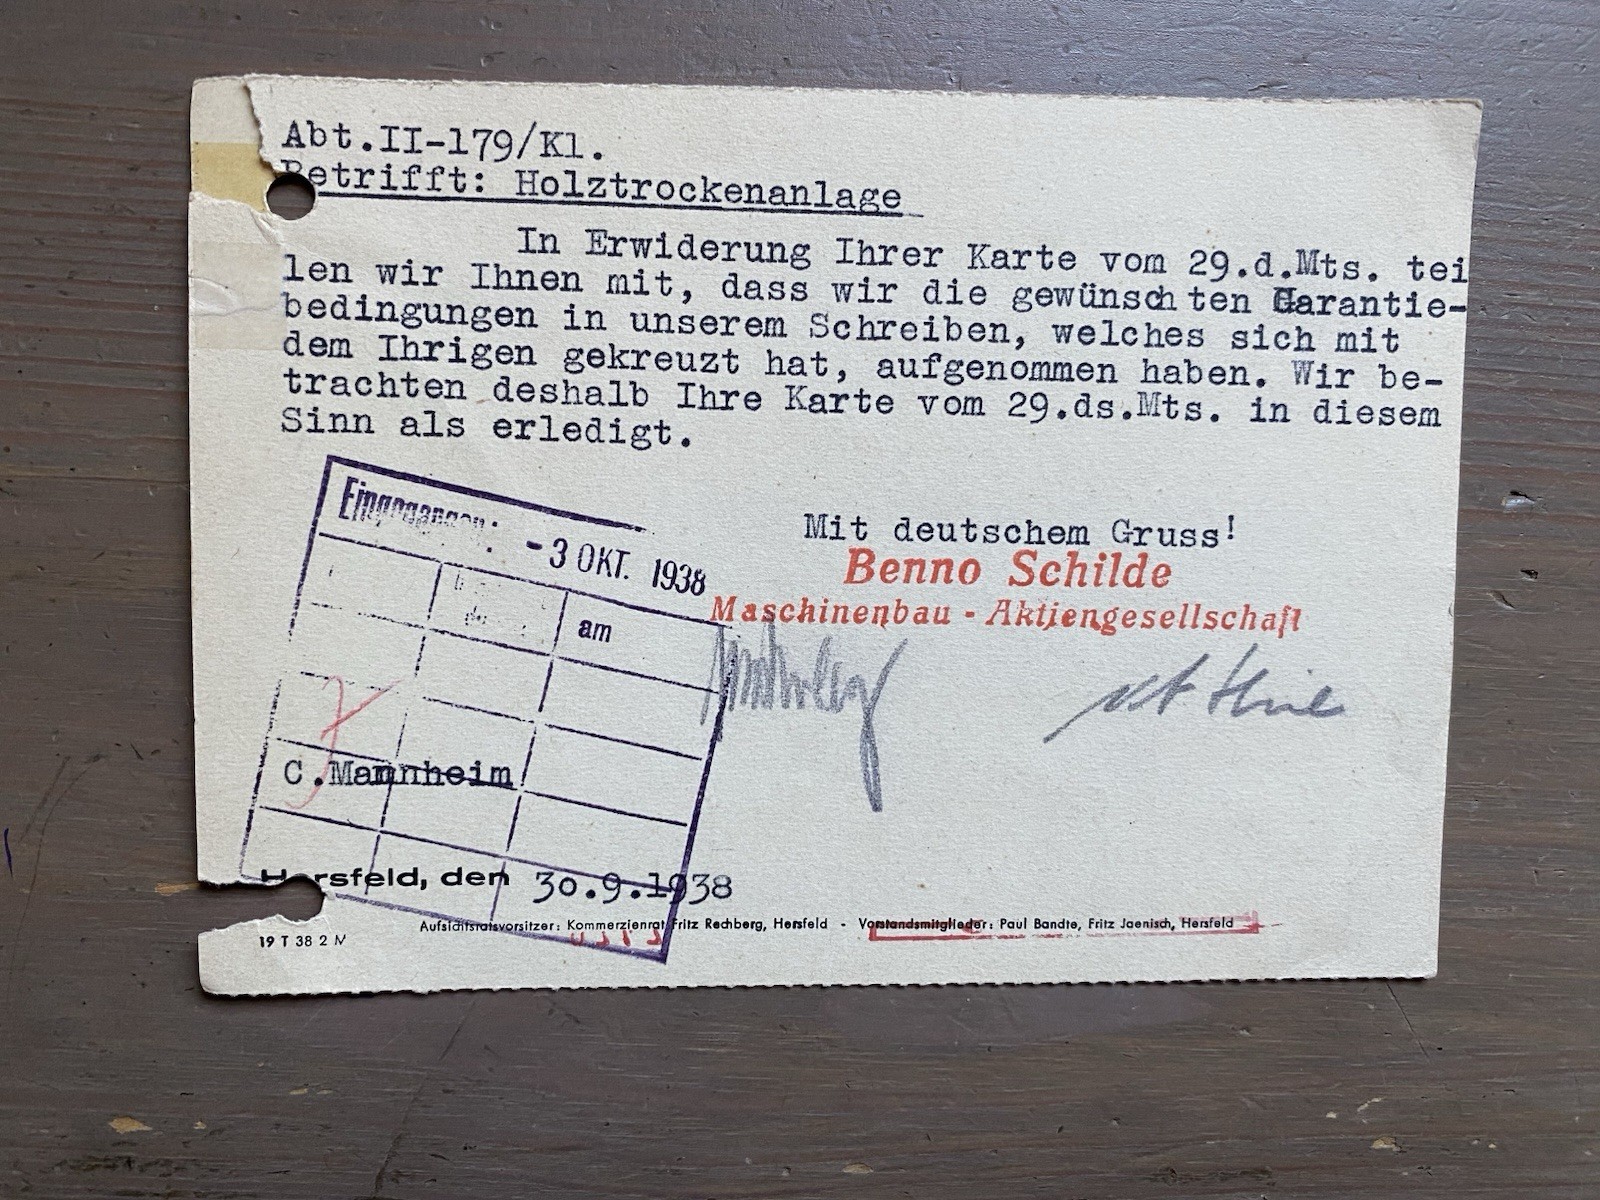 Abt.II-179/Kl.
Betrifft: Holztrockenanlage
In Erwiderung Ihrer Karte vom 29.d.Mts. tei
len wir Ihnen mit, dass wir die gewünschten Garantie-
bedingungen in unserem Schreiben, welches sich mit
dem Ihrigen gekreuzt hat, aufgenommen haben. Wir be-
trachten deshalb Ihre Karte vom 29.ds.Mts. in diesem
Sinn als erledigt.
Eingegangen:
-3 OKT. 1938
am
Mit deutschem Gruss!
Benno Schilde
Maschinenbau - Aktiengesellschaft
C.Mannheim
Hersfeld, den 30.9.1938
Aufsichtsratsvorsitzer: Kommerzienrat Fritz Rechberg, Hersfeld - Vorstandsmitglieder: Paul Bandte, Fritz Jaenisch, Hersfeld
19 T 38 2 M